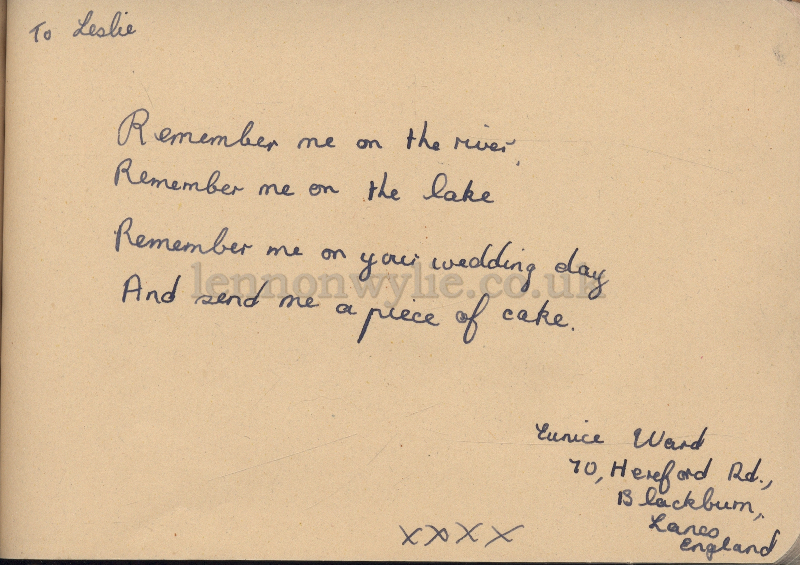 To Leslie
Remember me on the river,
Remember me on the lake
Remember me on your wedding day
lennonwylie.co.uk
And send me a piece of cake.
Eunice Ward
70, Hereford Rd.,
Blackburn,
Lancs
England
xxxx